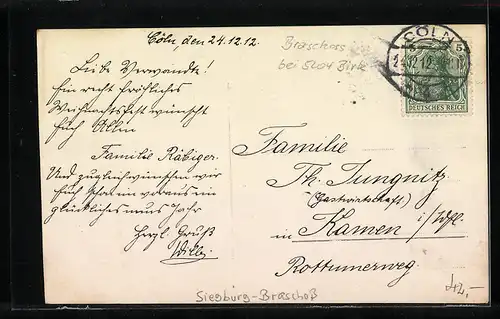 Cöln, den 24.12.12.
Liebe Verwandte!
Ein recht fröhliches
Weihnachtsfest wünscht
Euch Allen
Familie Räbiger.
Und zugleich wünschen wir
Euch schon im voraus ein
glückliches neues Jahr
Herzl. Gruß
Willy
Braschoss
bei 5204 Birk
CÖLN
5
24.12.12
DEUTSCHES REICH
Familie
Th. Jungnitz
(Gastwirtschaft)
in Kamen i/Wfl.
Rottumerweg.
Siegburg-Braschoß
42,-